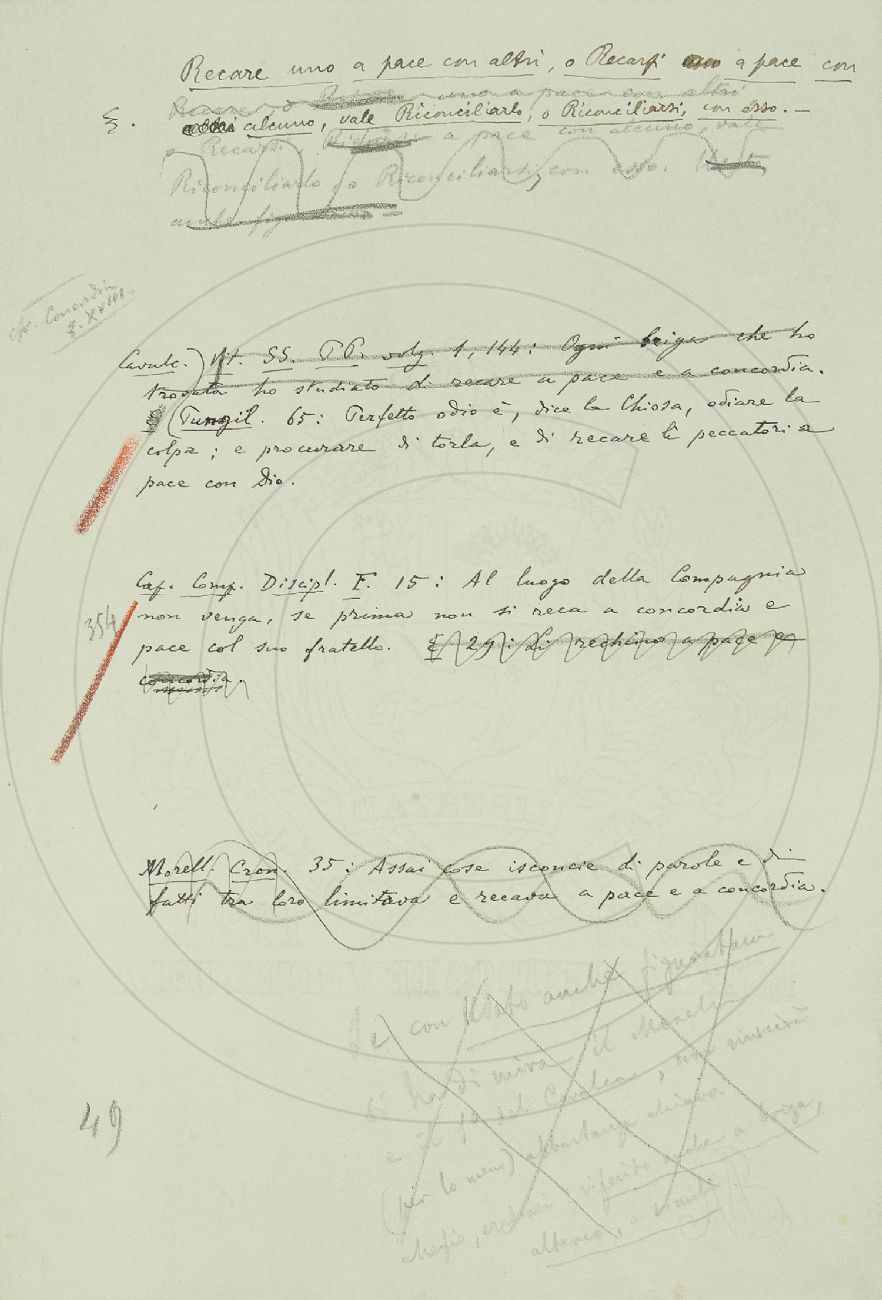 Recare uno a pace con altri, o Recarsi uno a pace con
§. altri alcuno, vale Riconciliarlo, o Riconciliarsi, con esso. —
Recare uno a pace con altri
o Recarsi a pace con alcuno, vale
Riconciliarlo o Riconciliarsi, con esso.
anche
cfr. Concordia
§. XVIII.
Cavalc.) Vit. SS. PP. volg. 1, 144: Ogni briga che ho
trovata ho studiato di recare a pace e a concordia.
(Pungil. 65: Perfetto odio è, dice la Chiosa, odiare la
colpa; e procurare di torla, e di recare li peccatori a
pace con Dio.
Cap. Comp. Discipl. F. 15: Al luogo della Compagnia
354
non venga, se prima non si reca a concordia e
pace col suo fratello. E 29: Li rechino a pace e
concordia.
Morell. Cron. 35: Assai cose isconcie di parole e di
fatti tra loro limitava e recava a pace e a concordia.
Se con Usato anche figuratam
si ha di mira il Morelli
e il 1º del Cavalca,
(per lo meno) abbastanza chiaro.
riferito anche a briga,
49